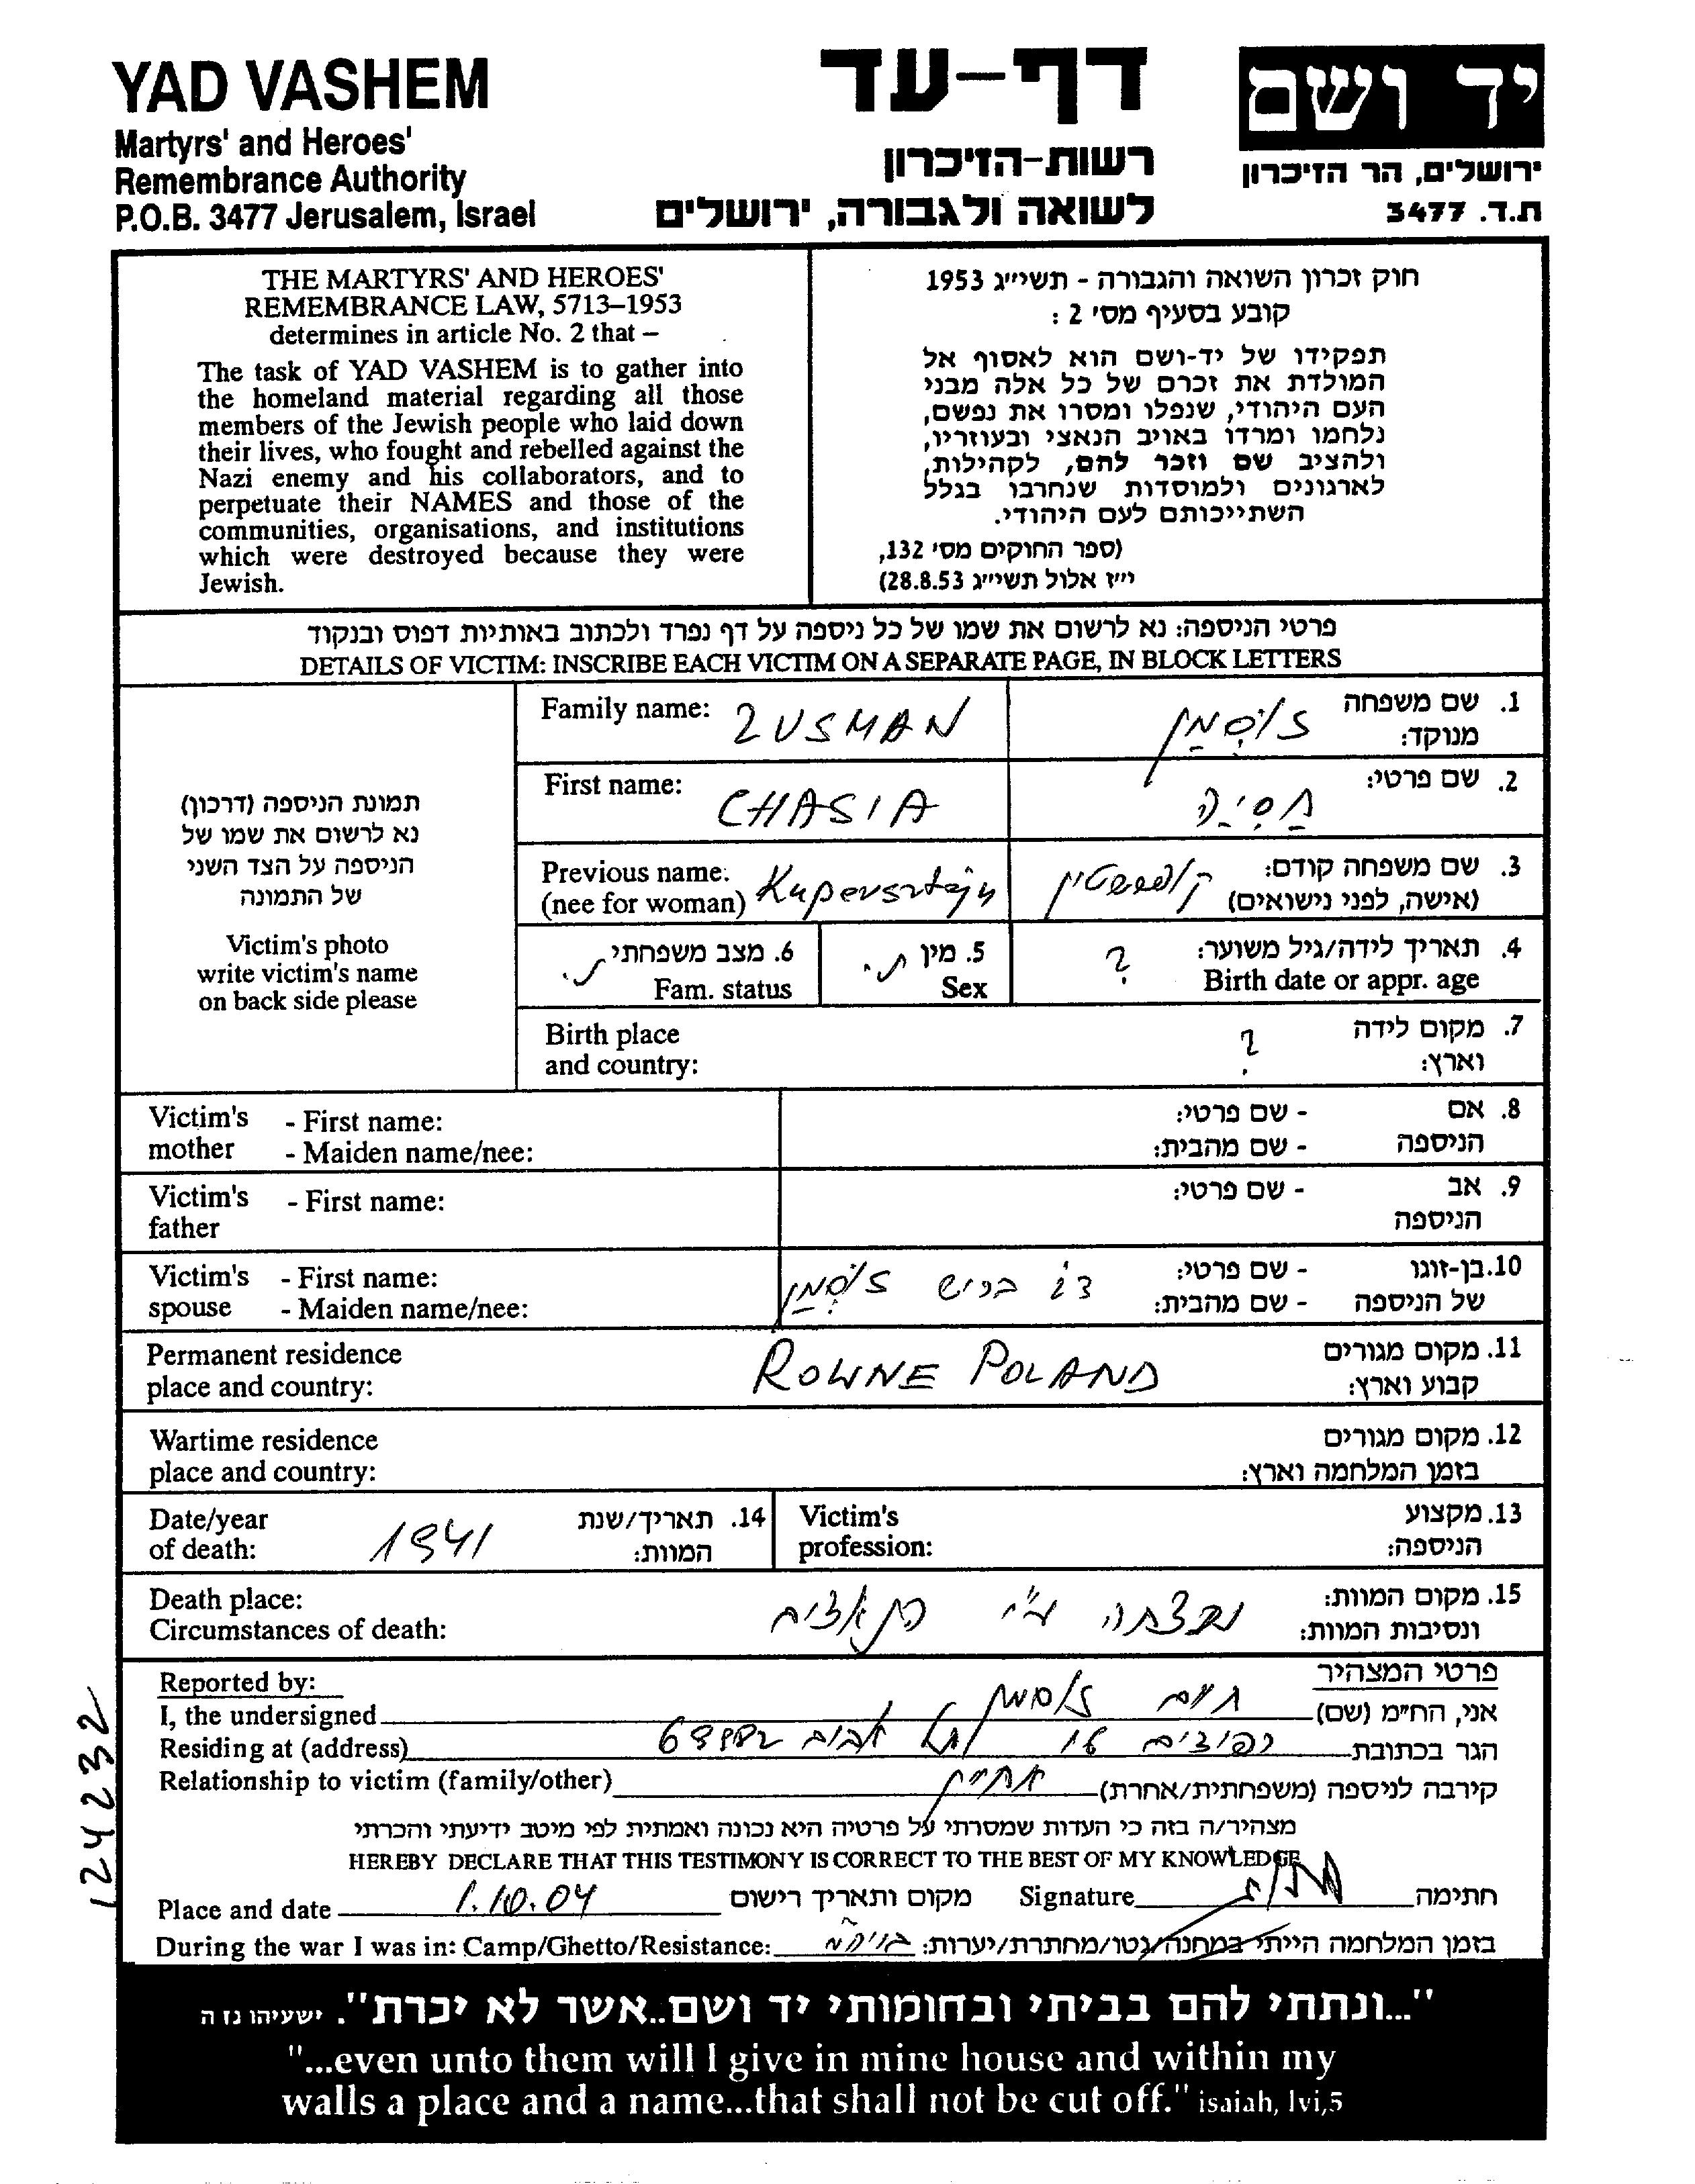 YAD VASHEM
Martyrs' and Heroes'
Remembrance Authority
P.O.B. 3477 Jerusalem, Israel
דף-עד
רשות-הזיכרון
לשואה ולגבורה, ירושלים
יד ושם
ירושלים, הר הזיכרון
ת.ד. 3477
THE MARTYRS' AND HEROES'
REMEMBRANCE LAW, 5713–1953
determines in article No. 2 that –
The task of YAD VASHEM is to gather into
the homeland material regarding all those
members of the Jewish people who laid down
their lives, who fought and rebelled against the
Nazi enemy and his collaborators, and to
perpetuate their NAMES and those of the
communities, organisations, and institutions
which were destroyed because they were
Jewish.
חוק זכרון השואה והגבורה - תשי״ג 1953
קובע בסעיף מס' 2 :
תפקידו של יד-ושם הוא לאסוף אל
המולדת את זכרם של כל אלה מבני
העם היהודי, שנפלו ומסרו את נפשם,
נלחמו ומרדו באויב הנאצי ובעוזריו,
ולהציב שם וזכר להם, לקהילות,
לארגונים ולמוסדות שנחרבו בגלל
השתייכותם לעם היהודי.
(ספר החוקים מס' 132,
י״ז אלול תשי״ג 28.8.53)
פרטי הניספה: נא לרשום את שמו של כל ניספה על דף נפרד ולכתוב באותיות דפוס ובנקוד
DETAILS OF VICTIM: INSCRIBE EACH VICTIM ON A SEPARATE PAGE, IN BLOCK LETTERS
תמונת הניספה (דרכון)
נא לרשום את שמו של
הניספה על הצד השני
של התמונה
Victim's photo
write victim's name
on back side please
Family name: ZUSMAN זוּסְמַן 1. שם משפחה
מנוקד:
First name: CHASIA חַסְיָה 2. שם פרטי:
Previous name: Kupersztejn קופרשטיין 3. שם משפחה קודם:
(nee for woman) (אישה, לפני נישואים)
6. מצב משפחתי נ. 5. מין נ. ? 4. תאריך לידה/גיל משוער:
Fam. status Sex Birth date or appr. age
Birth place ? 7. מקום לידה
and country: וארץ:
Victim's - First name: - שם פרטי: 8. אם
mother - Maiden name/nee: - שם מהבית: הניספה
Victim's - First name: - שם פרטי: 9. אב
father הניספה
Victim's - First name: זוסמן - שם פרטי: 10. בן-זוגו
spouse - Maiden name/nee: - שם מהבית: של הניספה
Permanent residence ROWNE POLAND 11. מקום מגורים
place and country: קבוע וארץ:
Wartime residence 12. מקום מגורים
place and country: בזמן המלחמה וארץ:
Date/year 1941 14. תאריך/שנת Victim's 13. מקצוע
of death: המוות: profession: הניספה:
Death place: נרצחה ע״י הנאצים 15. מקום המוות:
Circumstances of death: ונסיבות המוות:
Reported by: פרטי המצהיר
I, the undersigned חיים זוסמן אני, הח״מ (שם)
Residing at (address) תל אביב הגר בכתובת
Relationship to victim (family/other) אחיין קירבה לניספה (משפחתית/אחרת)
מצהיר/ה בזה כי העדות שמסרתי על פרטיה היא נכונה ואמתית לפי מיטב ידיעתי והכרתי
HEREBY DECLARE THAT THIS TESTIMONY IS CORRECT TO THE BEST OF MY KNOWLEDGE
Place and date 1.10.04 מקום ותאריך רישום Signature חתימה
During the war I was in: Camp/Ghetto/Resistance: בזמן המלחמה הייתי במחנה/גטו/מחתרת/יערות:
"...ונתתי להם בביתי ובחומותי יד ושם..אשר לא יכרת". ישעיהו נו ה
"...even unto them will I give in mine house and within my
walls a place and a name...that shall not be cut off." isaiah, lvi,5
124232